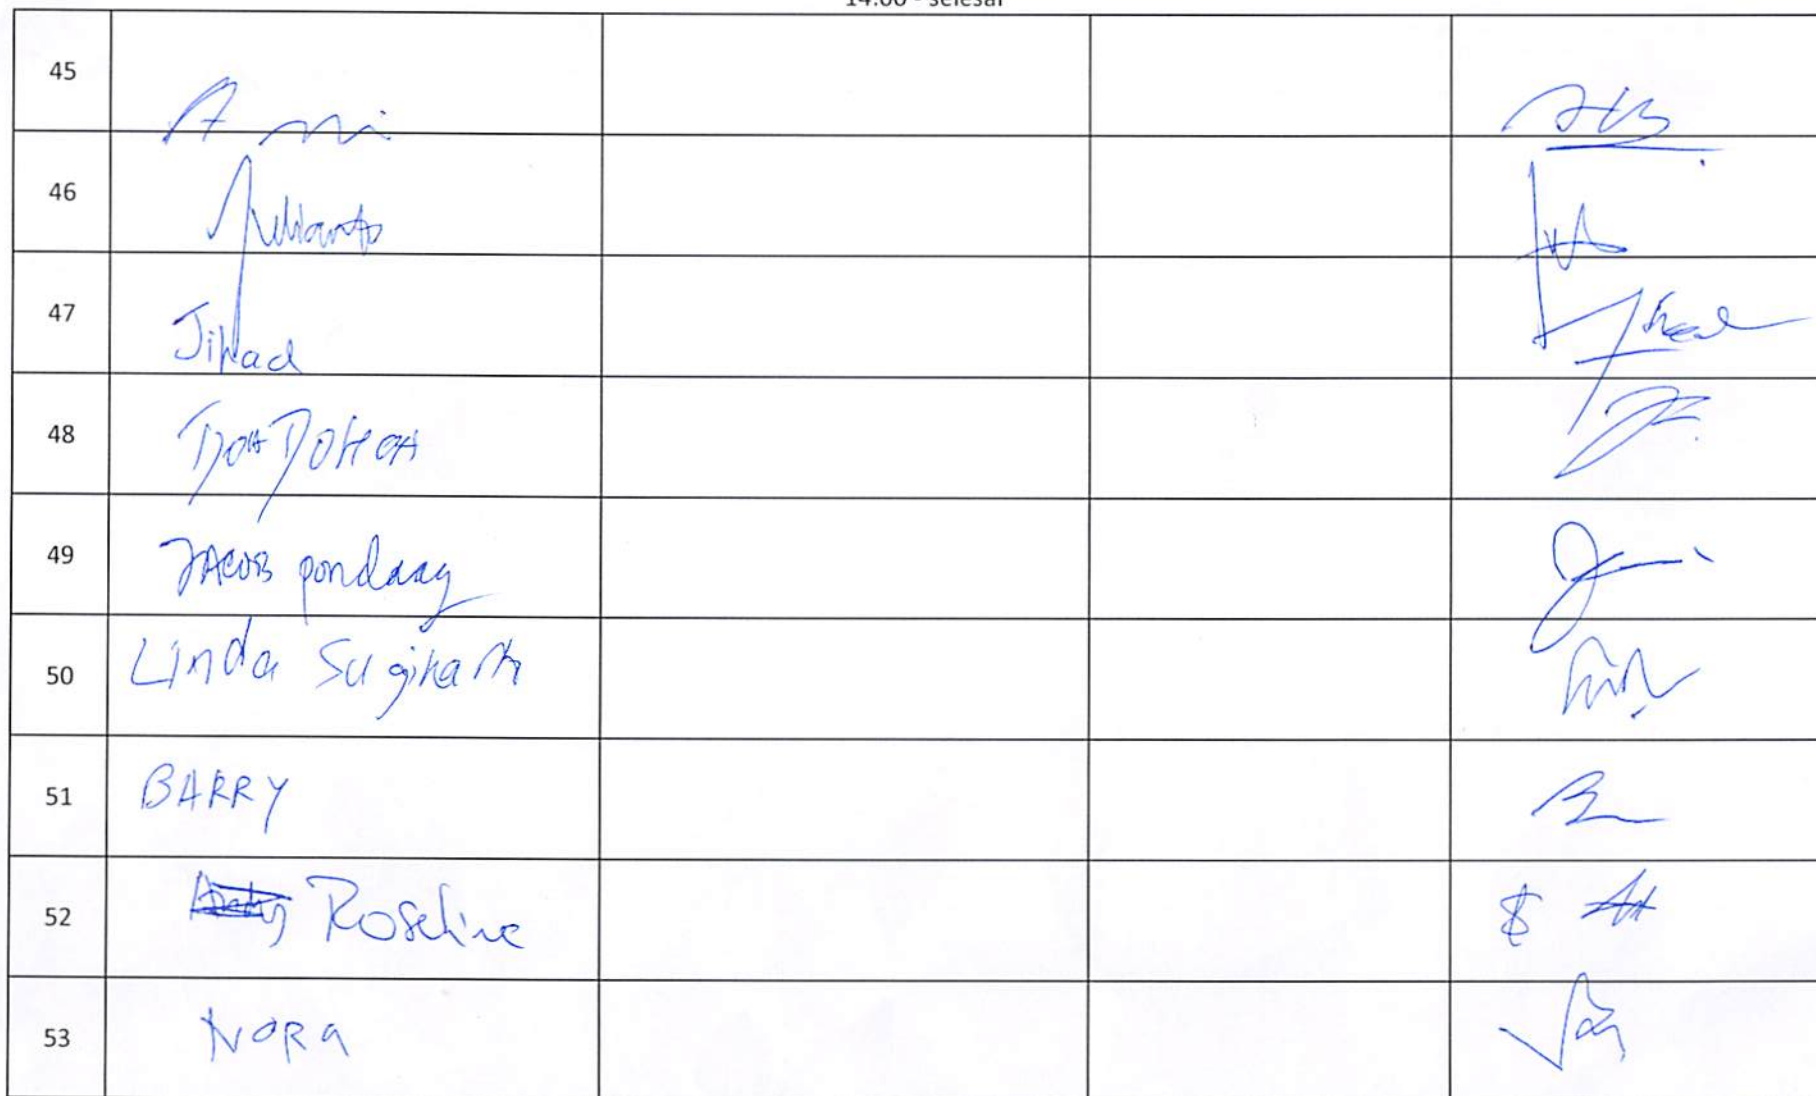 14.00 - selesai
45 Ami
46 Julianto
47 Jihad
48
49 JACOB pondaag
50 Linda Sugiharti
51 BARRY
52 Roseline
53 NORA